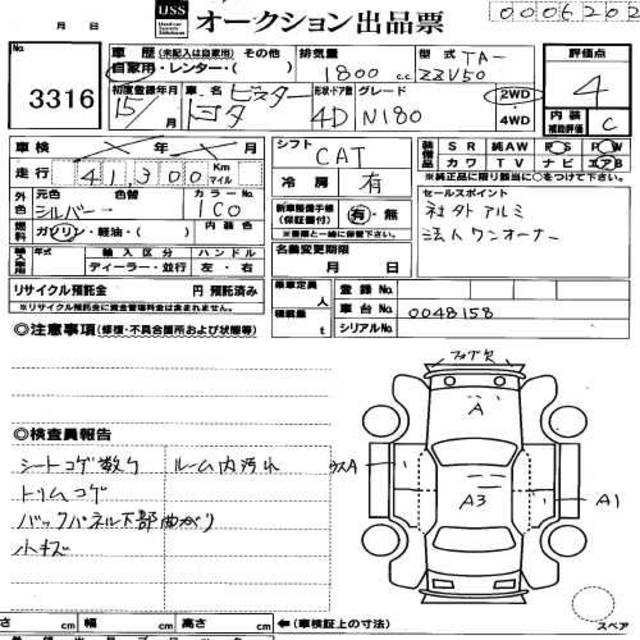 USS オークション出品票
0006202
月 日
No. 3316
車歴 (未記入は自家用) その他
自家用・レンター・( )
排気量 1800 c.c.
型式 TA-ZZV50
評価点 4
初度登録年月 15/ 月
車名 ビスター トヨタ
形状・ドア数 4D
グレード N180
2WD
4WD
内装補助評価 C
車検 年 月
走行 41,300 Km マイル
シフト CAT
冷房 有
装備品 SR 純AW PS PW
カワ TV ナビ エアB
※純正品に限り該当に○をつけて下さい。
外色 元色 色替 カラーNo.
シルバー 1C0
燃料 ガソリン・軽油・( )
内装色
新車整備手帳(保証書付) 有・無
※書類と一緒に保管下さい。
セールスポイント
社外アルミ
法人ワンオーナー
輸入車用 年式 輸入区分 ハンドル
ディーラー・並行 左・右
名義変更期限
月 日
リサイクル預託金 円 預託済み
※リサイクル預託金に資金管理料金は含まれません。
乗車定員 人
積載量 t
登録No.
車台No. 0048158
シリアルNo.
◎注意事項(修復・不具合箇所および状態等)
フォグ欠
A
◎検査員報告
シートコゲ数ヶ ルーム内汚れ
トリムコゲ
バックパネル下部曲がり
小キズ
ウスA
A3
A1
スペア
さ cm 幅 cm 高さ cm ←(車検証上の寸法)